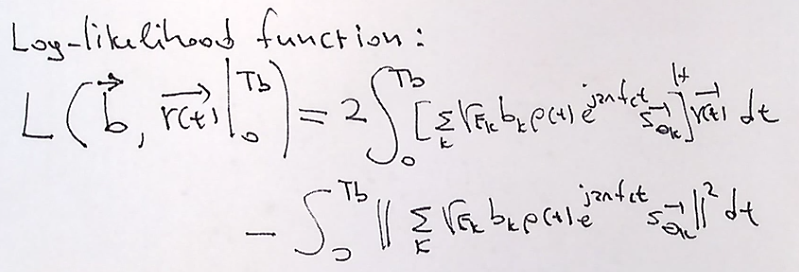 Log-likelihood function:
L(b⃗, r⃗(t)|₀^Tb) = 2 ∫₀^Tb [∑_k √E_k b_k p(t) e^{j2πf_c t} s⃗_θk]^H r⃗(t) dt
− ∫₀^Tb ‖ ∑_k √E_k b_k p(t) e^{j2πf_c t} s⃗_θk ‖² dt